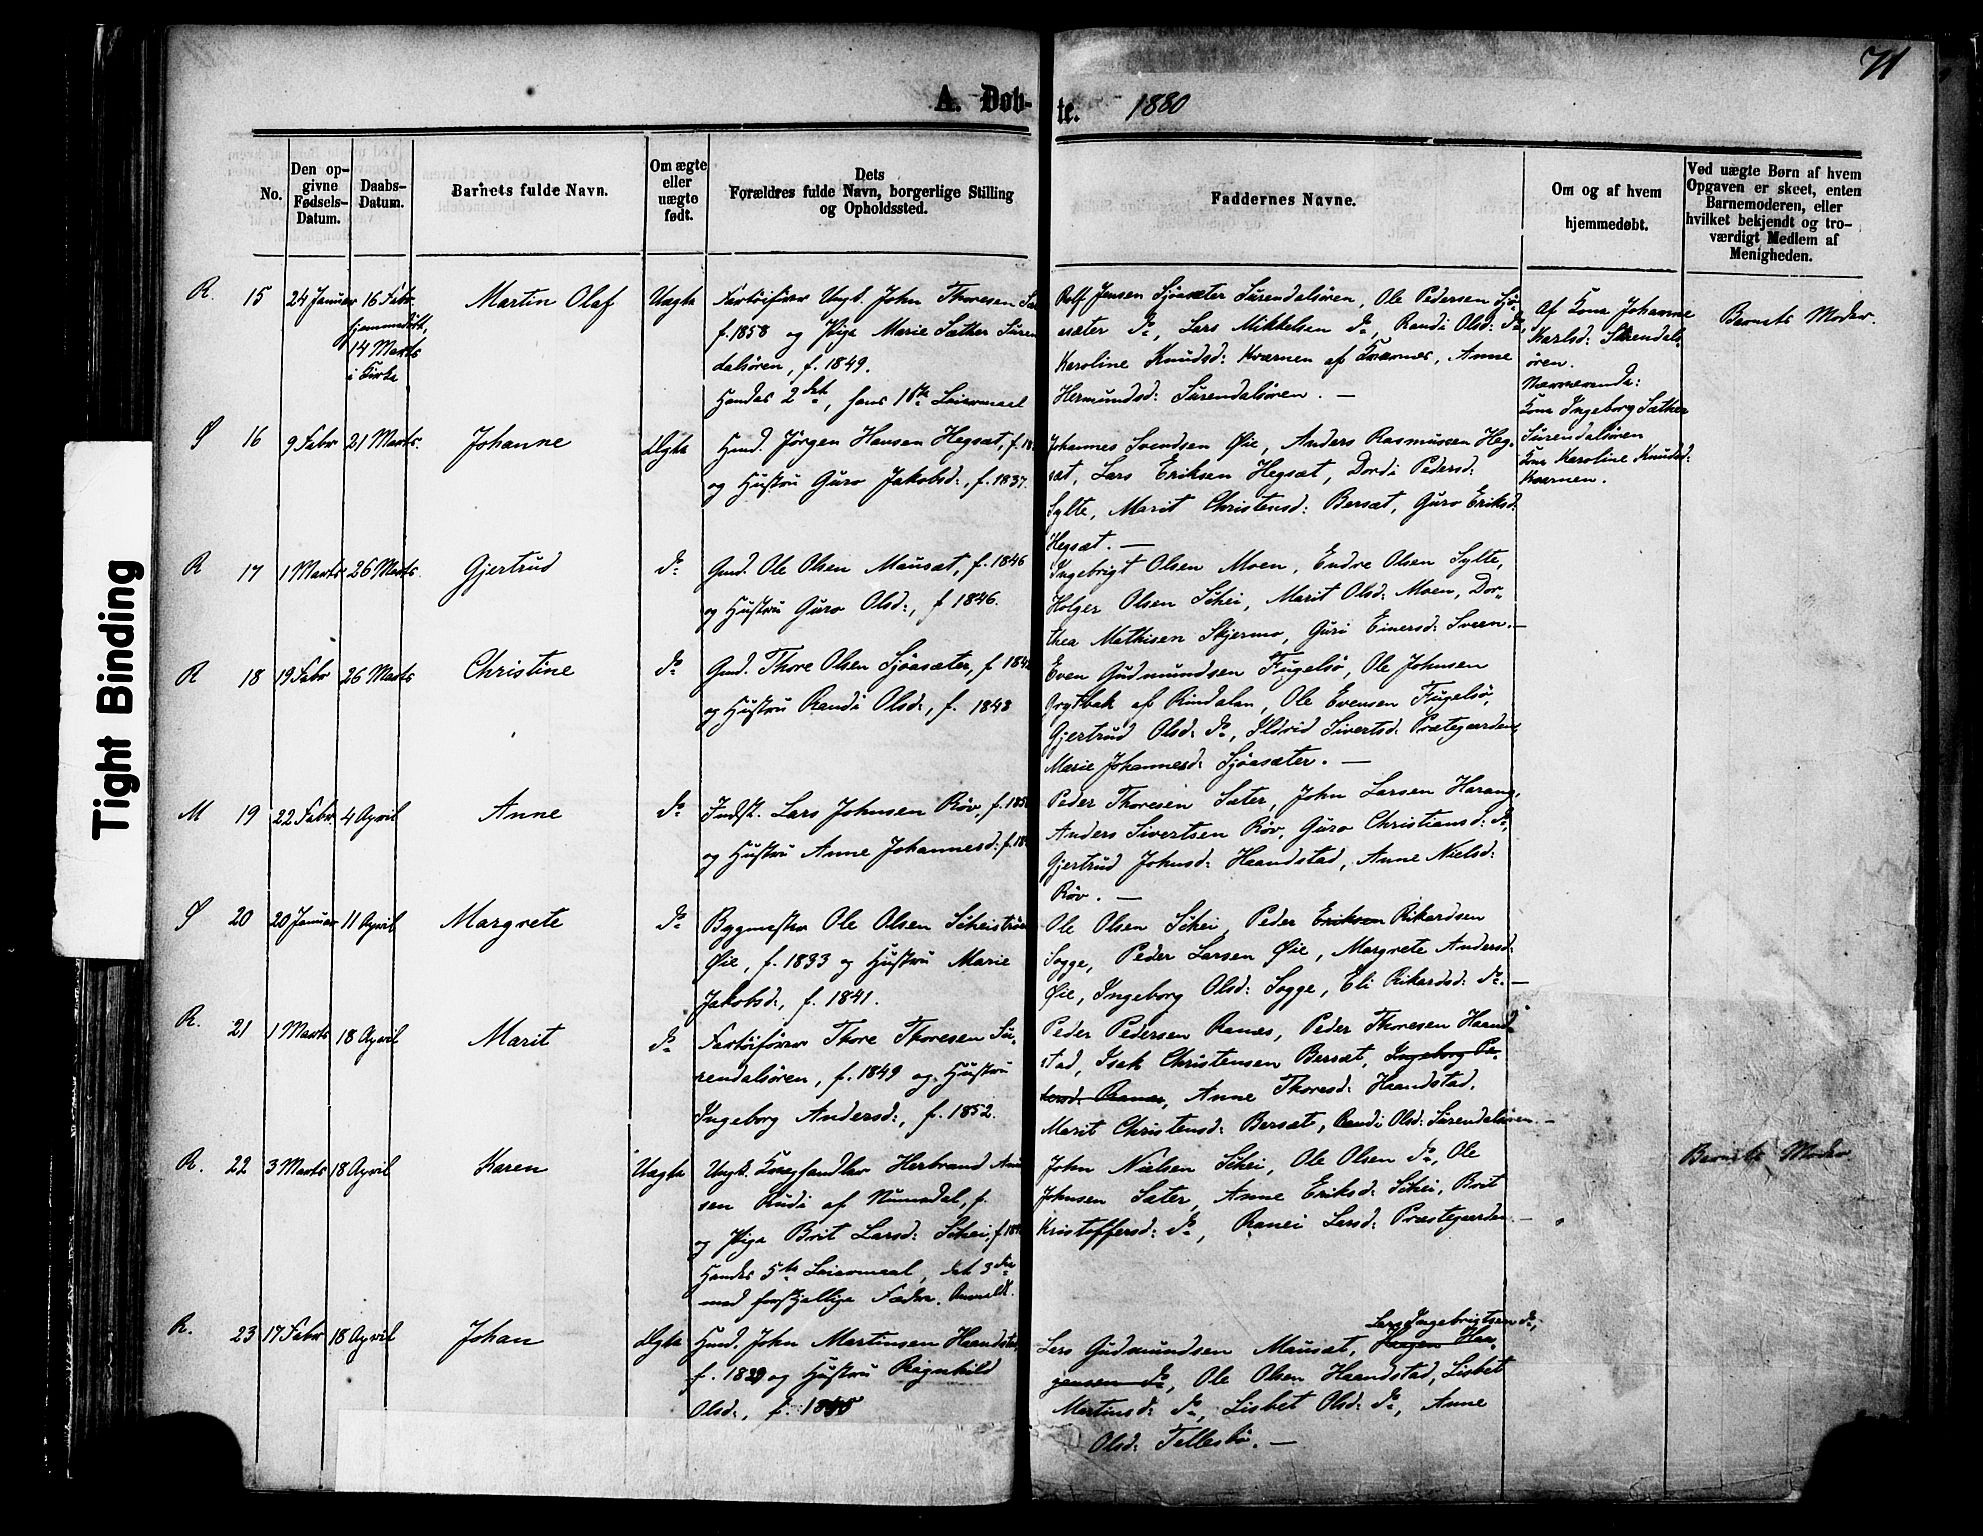 71
A. Døb-
te. 1880
No.
Den op-
givne
Fødsels-
Datum.
Daabs-
Datum.
Barnets fulde Navn.
Om ægte
eller
uægte
født.
Dets
Forældres fulde Navn, borgerlige Stilling
og Opholdssted.
Faddernes Navne.
Om og af hvem
hjemmedøbt.
Ved uægte Børn af hvem
Opgaven er skeet, enten
Barnemoderen, eller
hvilket bekjendt og tro-
værdigt Medlem af
Menigheden.
R. 15 24 Januar 16 Febr.
hjemmedøbt,
14 Marts
i Kirke
Martin Olaf
Uægte
Fartøifører Ungk. John Thoresen
f. 1858 og Pige Marie Sæther Suren
dalsøren, f. 1849.
Hendes 2det, hans 1ste Leiermaal
Rolf Jensen Sjøasæter Surendalsøren, Ole Pedersen Sjø-
asæter do, Lars Mikkelsen do, Randi Olsd: do,
Karoline Knudsd: Kværnen af Kvernes, Anne
Hermundsd: Surendalsøren. —
Af Kone Johanne
Karlsd: Surendals-
øren.
Nærværende:
Kone Ingeborg Sæther
Surendalsøren
Kone Karoline Knudsd:
Kværnen.
Barnets Moder.
Ø 16 9 Febr 21 Marts. Johanne Ægte
Hmd. Jørgen Hansen Hegsæt, f.
og Hustru Guro Jakobsd:, f. 1837.
Johannes Svendsen Øie, Anders Rasmussen Heg-
sæt, Lars Eriksen Hegsæt, Dordi Pedersd:
Sylte, Marit Christensd: Bersæt, Guro Eriksd:
Hegsæt. —
R 17 1 Marts 26 Marts. Gjertrud do
Gmd. Ole Olsen Mausæt, f. 1846
og Hustru Guro Olsd:, f 1846.
Ingebrigt Olsen Moen, Endre Olsen Sylte,
Holger Olsen Schei, Marit Olsd: Moen, Dor-
thea Mathisen Skjermo, Guri Einersd: Sveen. —
R 18 19 Febr 26 Marts Christine do
Gmd. Thore Olsen Sjøasæter, f
og Hustru Randi Olsd:, f. 1848
Even Gudmundsen Fugelsø, Ole Johnsen
Grytbak af Rindalen, Ole Evensen Fugelsø,
Gjertrud Olsd: do, Ildrid Sivertsd: Præstegaarden,
Marie Johannesd: Sjøasæter. —
M 19 22 Febr. 4 April Anne do
Indst. Lars Johnsen Røv, f.
og Hustru Anne Johannesd: f.
Peder Thoresen Sæter, John Larsen Harang,
Anders Sivertsen Røv, Guro Christiansd: do,
Gjertrud Johnsd: Haandstad, Anne Nielsd:
Røv. —
Ø 20 20 Januar 11 April Margrete do
Bygmester Ole Olsen Scheistrøen
Øie, f. 1833 og Hustru Marie
Jakobsd:, f. 1841.
Ole Olsen Schei, Peder Eriksen Rikardsen
Sogge, Peder Larsen Øie, Margrete Andersd:
Øie, Ingeborg Olsd: Sogge, Eli Rikardsd: do. —
R. 21 1 Marts 18 April Marit do
Fartøifører Thore Thoresen Su-
rendalsøren, f. 1849 og Hustru
Ingeborg Andersd:, f. 1852.
Peder Pedersen Ranes, Peder Thoresen Haand-
stad, Isak Christensen Bersæt, Ingeborg Pe-
tersd: Ranes, Anne Thoresd: Haandstad,
Marit Christensd: Bersæt, Randi Olsd: Surendalsøren. —
R. 22 3 Marts 18 April Karen Uægte
Ungk. Kræghandler Herbrand
sen Rudi af Numedal, f.
og Pige Brit Larsd: Schei, f.
Hendes 5te Leiermaal, det 3die
med forskjellige Fædre. Anmeldt.
John Nielsen Schei, Ole Olsen do, Ole
Johnsen Sæter, Anne Eriksd: Schei, Brit
Kristoffersd: do, Ranei Larsd: Præstegaarden. —
Barnets Moder
R. 23 17 Febr 18 April Johan Ægte
Hmd. John Martinsen Haandstad
f. 1839 og Hustru Ragnhild
Olsd:, f. 1845
Lars Ingebrigtsen do,
Lars Gudmundsen Mausæt, Hagen Haa-
gensen do, Ole Olsen Haandstad, Lisbet
Martinsd: do, Lisbet Olsd: do, Anne
Olsd: Tellesbø. —
Tight Binding